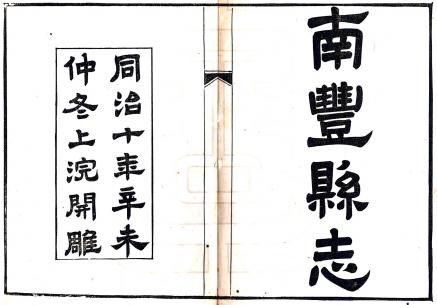 南豐縣志
同治十年辛未
仲冬上浣開雕